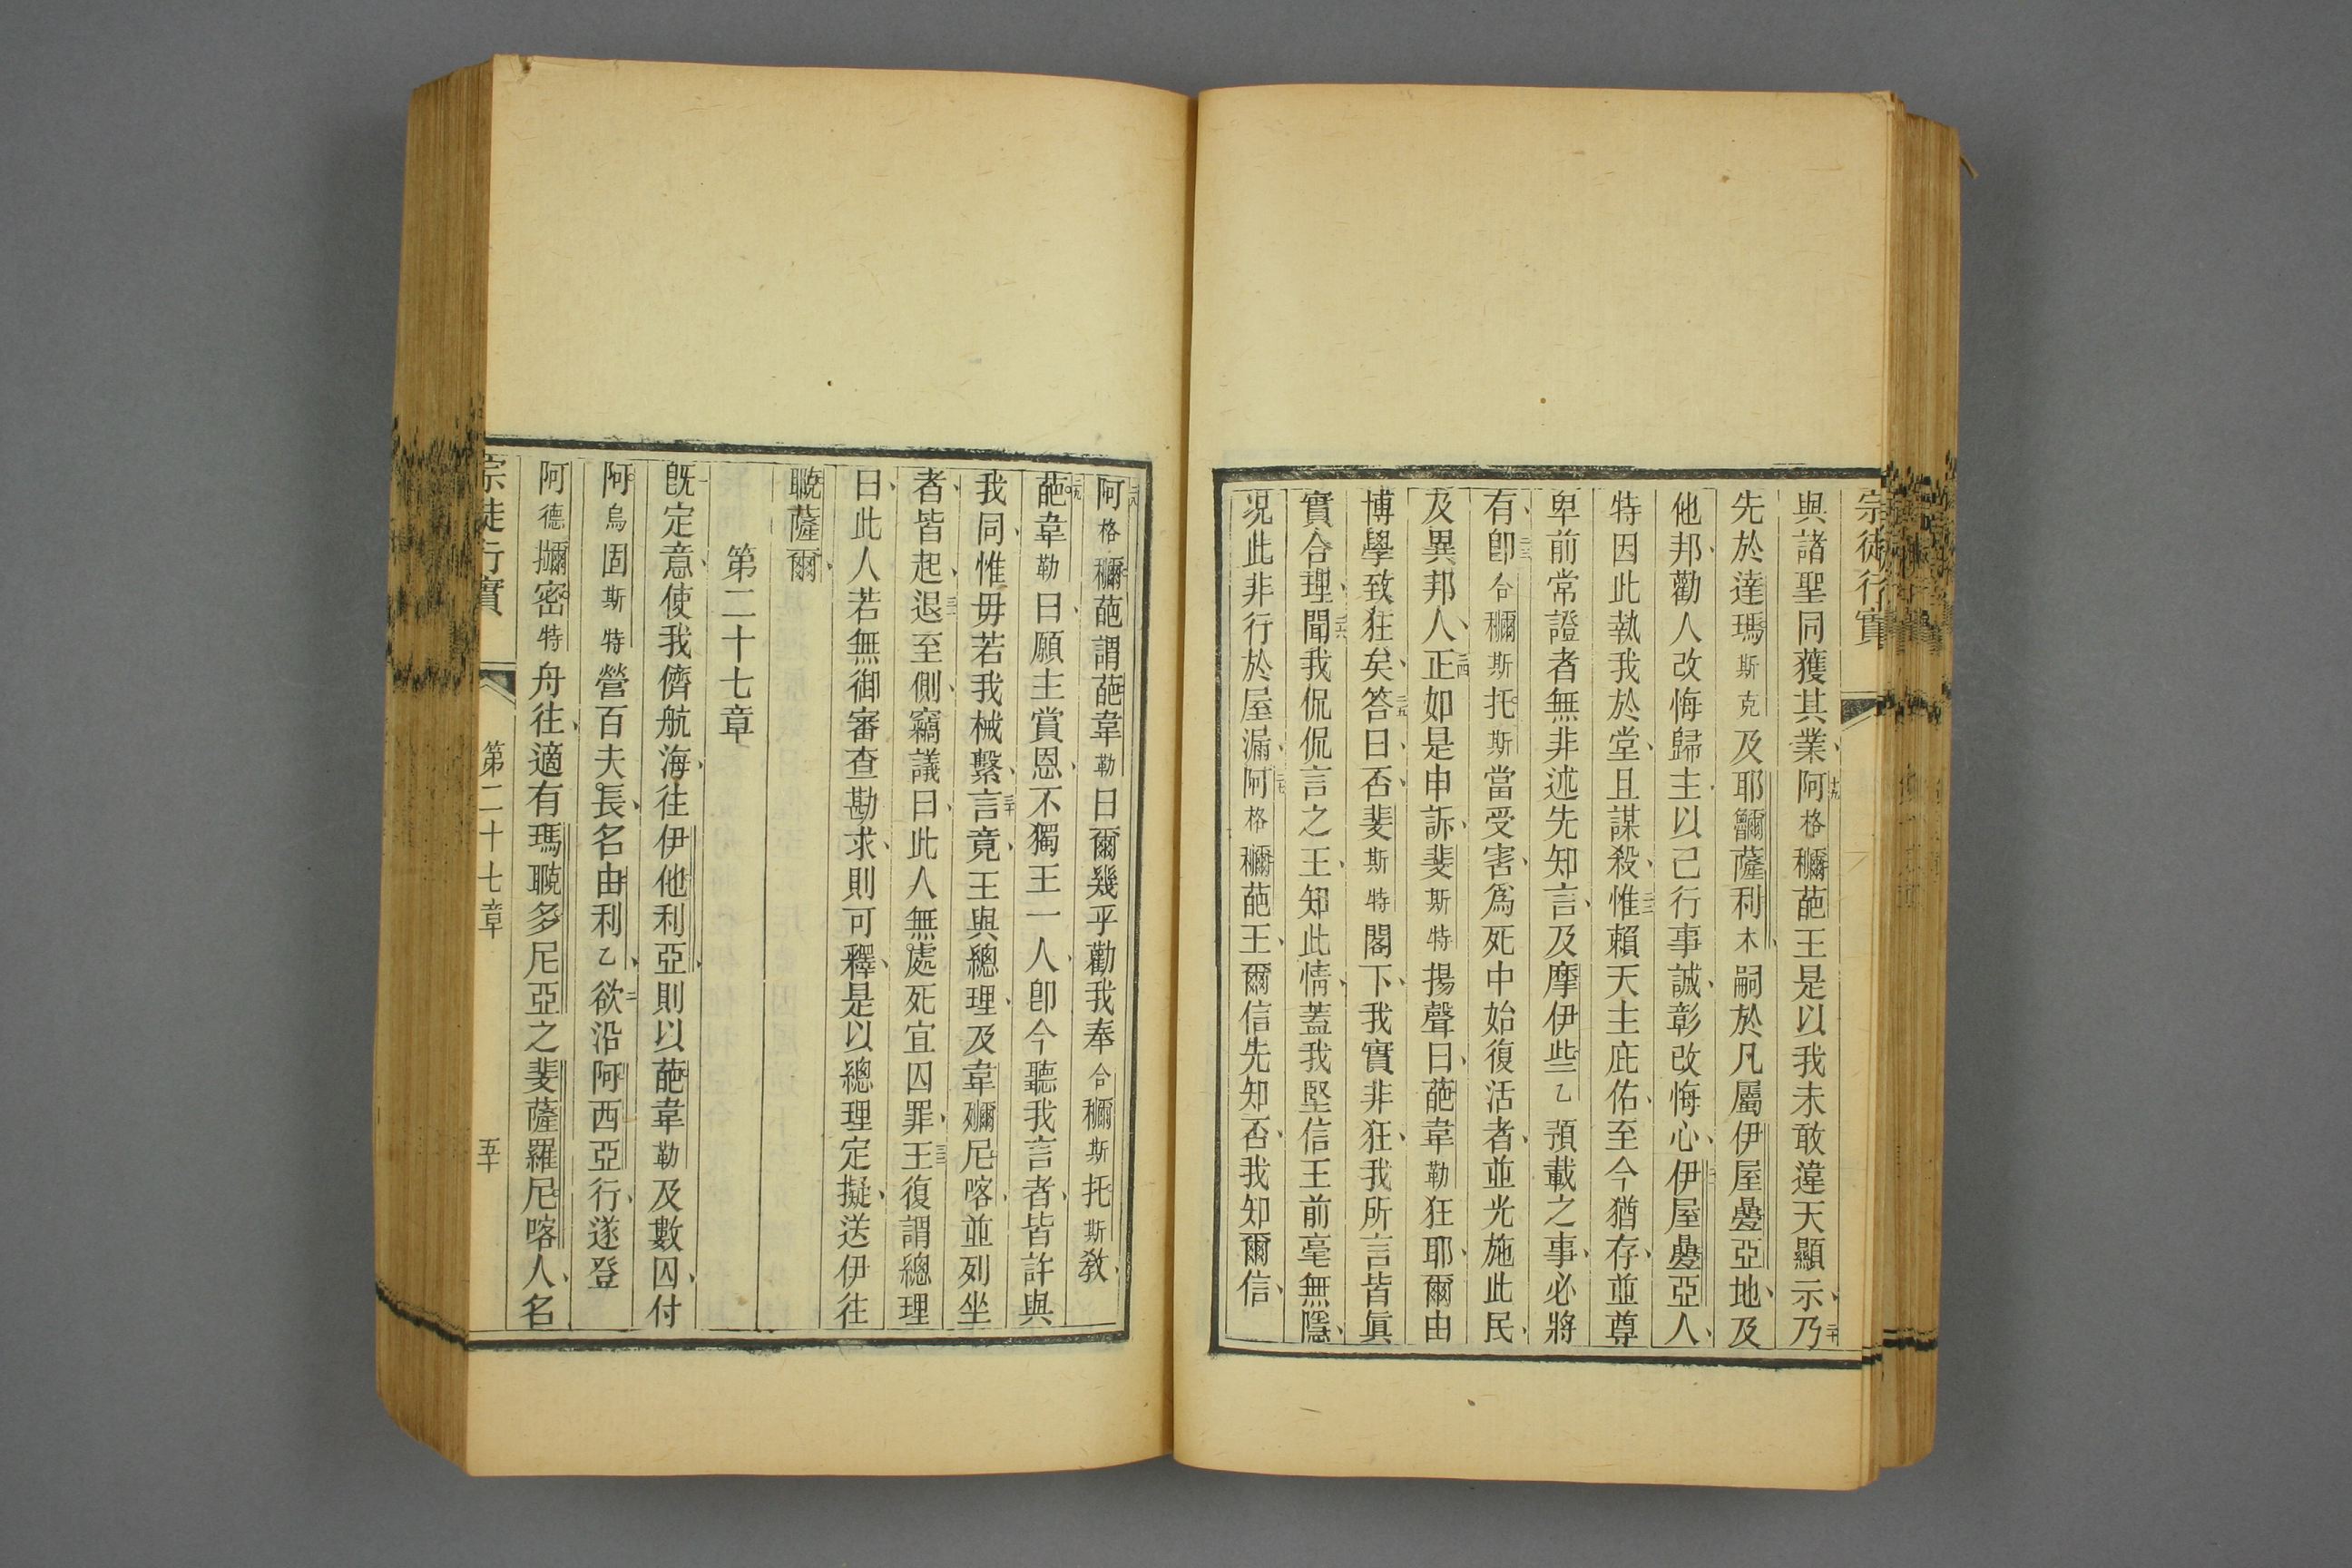 宗徒行實
與諸聖同獲其業、十九阿格穪葩王是以我未敢違天顯示、二十乃
先於達瑪斯克及耶薩利木嗣於凡屬伊屋亞地、及
他邦、勸人改悔歸主、以己行事誠、彰改悔心、伊屋亞人、
特因此執我於堂、且謀殺、惟賴天主庇佑、至今猶存、並尊
卑前常證者無非述先知言、及摩伊些乙預載之事、必將
有、卽合穪斯托斯當受害、爲死中始復活者、並光施此民、
及異邦人、正如是申訴、斐斯特揚聲曰、葩韋勒狂耶、爾由
博學致狂矣、答曰、否、斐斯特閣下、我實非狂、我所言皆眞
實合理、聞我侃侃言之王、知此情、蓋我堅信王前毫無隱、
況此非行於屋漏、阿格穪葩王、爾信先知否、我知爾信、
阿格穪葩謂葩韋勒曰爾幾乎勸我奉合穪斯托斯教、
葩韋勒曰、願主賞恩、不獨王一人、卽今聽我言者、皆許與
我同、惟毋若我械繫、言竟、王與總理、及韋尼喀、並列坐
者、皆起、退至側、竊議曰、此人無處死宜囚罪、王復謂總理
曰、此人若無御審查勘求、則可釋、是以總理定擬、送伊往
薩爾、
第二十七章
一旣定意、使我儕航海、往伊他利亞、則以葩韋勒及數囚、付
阿烏固斯特營百夫長、名由利乙、二欲沿阿西亞行、遂登
阿德密特舟往、適有瑪多尼亞之斐薩羅尼喀人、名
宗徒行實
第二十七章
五十